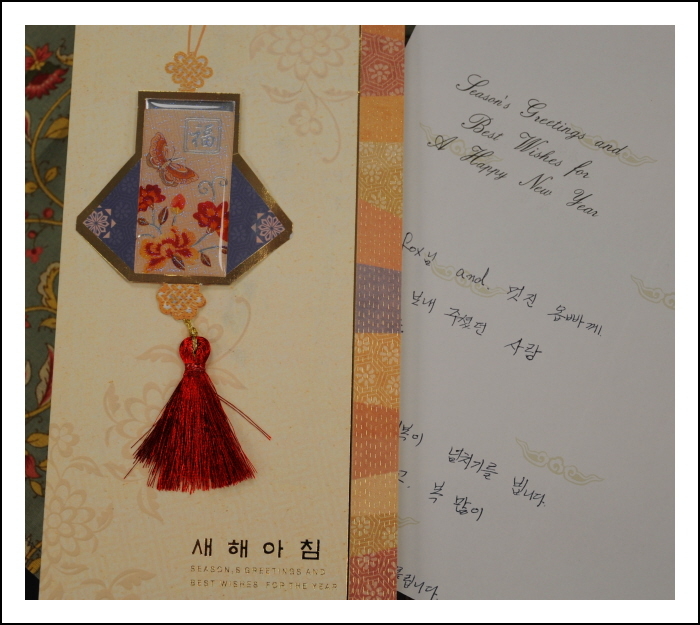 福
새해아침
SEASON,S GREETINGS AND
BEST WISHES FOR THE YEAR
Season's Greetings and
Best Wishes for
A Happy New Year
Rox님 and 멋진 옵빠께.
보내 주셨던
사람
복이 넘치기를 빕니다.
고. 복 많이
드립니다.